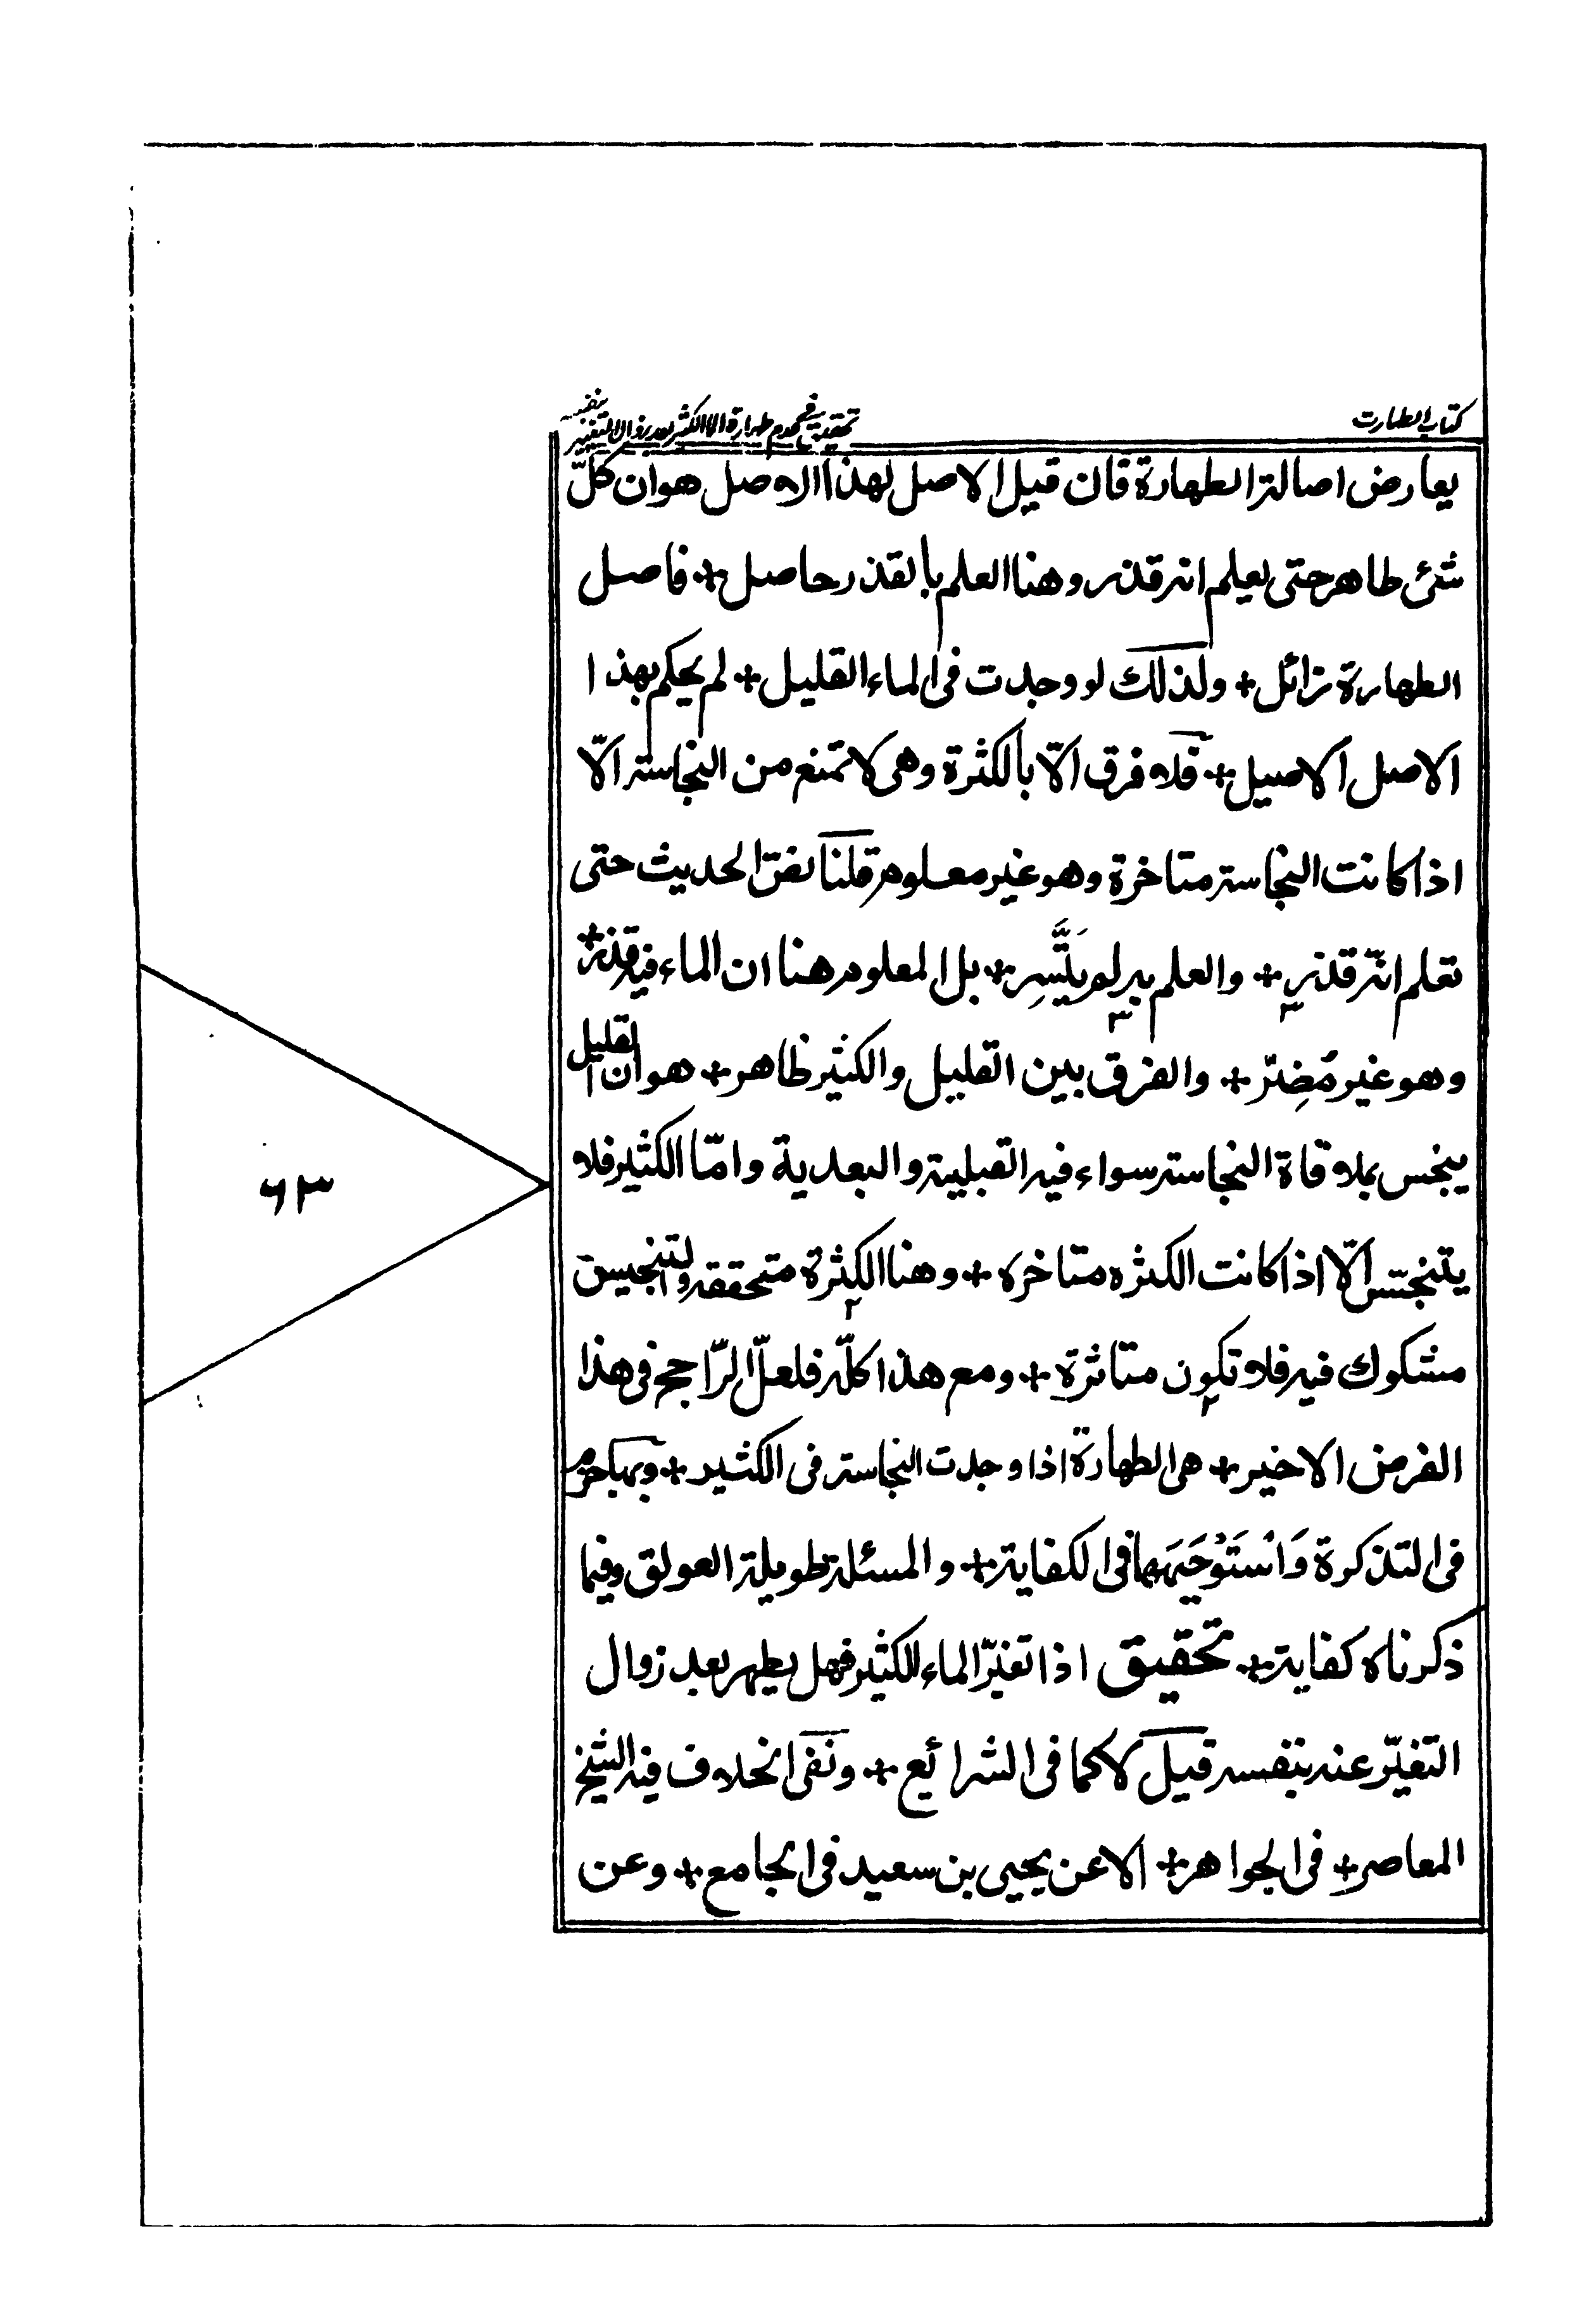 كتاب الطهارت
تحقيق في عدم طهارة الماء الكثير بعد زوال التغيير بنفسه
يعارض اصالة الطهارة فان قيل الاصل لهذا الاصل هو ان كلّ
شئ طاهر حتى يعلم انه قذر وهنا العلم بالقذر حاصل + فاصل
الطهارة زائل + ولذلك لو وجدت في الماء القليل + لم يحكم بهذا
الاصل الاصيل + فلا فرق الّا بالكثرة وهى لا تمنع من النجاسة الّا
اذا كانت النجاسة متاخرة وهو غير معلوم قلنا نصّ الحديث حتى
تعلم انّه قذر + والعلم به لم يتَّسِر + بل المعلوم هنا ان الماء فيه قذر +
وهو غير مُضِرّ + والفرق بين القليل والكثير ظاهر + هو ان القليل
ينجس بملاقاة النجاسة سواء فيه القبلية والبعدية وامّا الكثير فلا
يتنجّس الّا اذا كانت الكثره متاخره + وهنا الكثرة متحققه والتنجيس
مشكوك فيه فلا تكون متاثرة + ومع هذا كلّه فلعلّ الرّاجح فى هذا
الفرض الاخير + هى الطهارة اذا وجدت النجاسة فى الكثير + وبها جزم
فى التذكرة وَاسْتَوْجَهَهَا فى الكفاية + والمسئلة طويلة العولق وفيما
ذكرناه كفاية + تحقيق اذا تغيّر الماء الكثير فهل يطهر بعد زوال
التغيّر عنه بنفسه قيل لا كما فى الشرائع + ونفى الخلاف فيه الشيخ
المعاصر + فى الجواهر + الا عن يحيى بن سعيد فى الجامع + وعن
٦٣